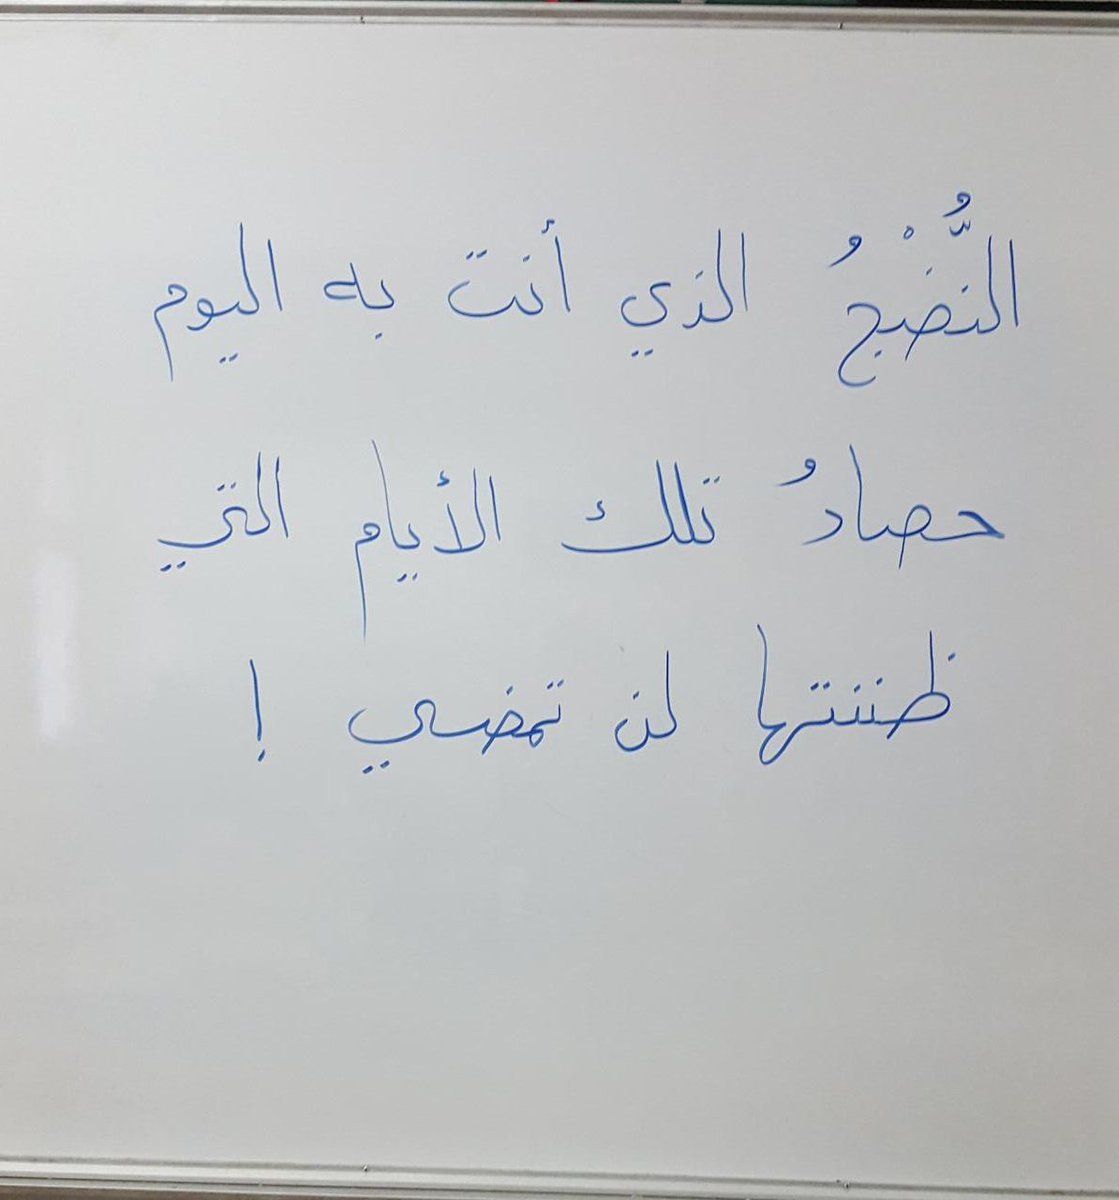 النُّضْجُ الذي أنت به اليوم
حصادُ تلك الأيام التي
ظننتها لن تمضي !